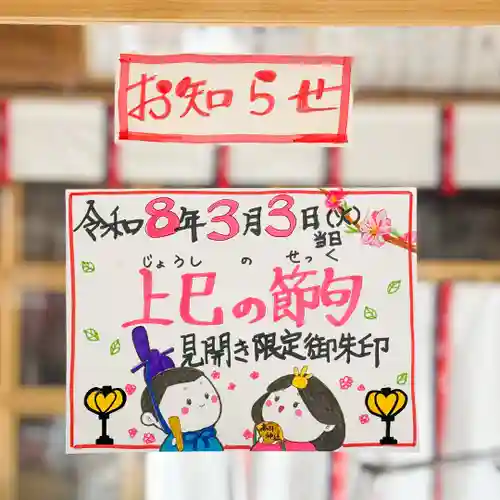 お知らせ
令和8年3月3日(火)
当日
じょうし の せっく
上巳の節句
見開き限定御朱印